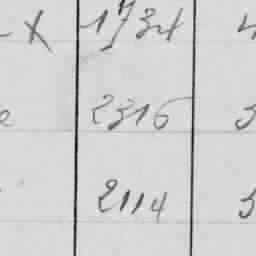 x 1734 4
2316 5
2114 5